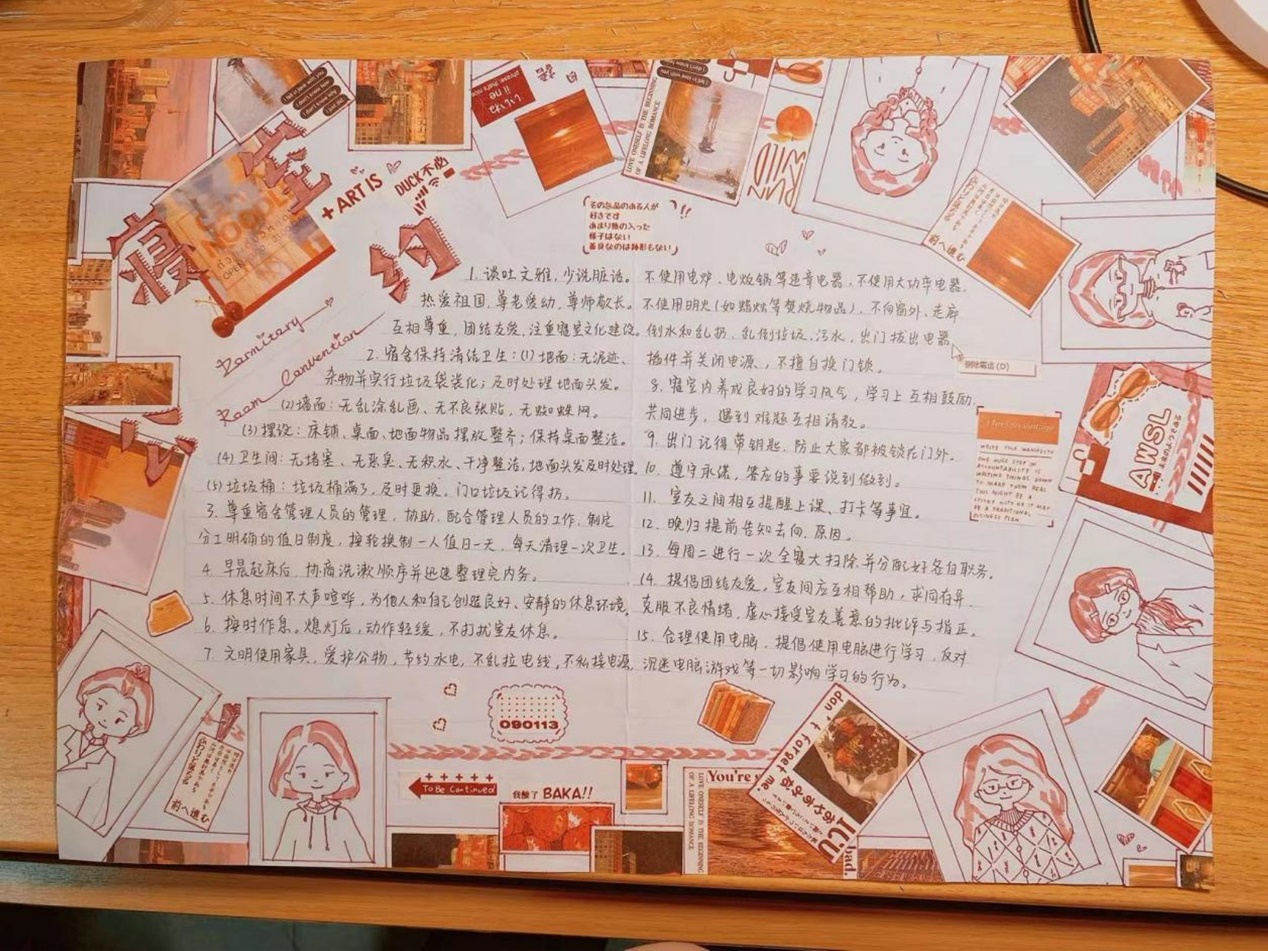 寝室公约
Zormitory
Room Canvention
+ ART IS
DUCK不必
NOODLE
LOVE ONESELF IS THE BEGINNING
OF A LIFELONG ROMANCE
その気品のある人が
好きです
あまり熱の入った
様子はない
善良なのは跡形もない
1. 谈吐文雅，少说脏话。
热爱祖国，尊老爱幼，尊师敬长。
互相尊重，团结友爱，注重寝室文化建设。
2. 宿舍保持清洁卫生：(1) 地面：无泥迹、
杂物并实行垃圾袋装化；及时处理地面头发。
(2) 墙面：无乱涂乱画、无不良张贴，无蜘蛛网。
(3) 摆设：床铺、桌面、地面物品摆放整齐；保持桌面整洁。
(4) 卫生间：无堵塞、无恶臭、无积水、干净整洁，地面头发及时处理
(5) 垃圾桶：垃圾桶满了，及时更换，门口垃圾记得扔。
3. 尊重宿舍管理人员的管理，协助，配合管理人员的工作，制定
分工明确的值日制度，按轮换制一人值日一天，每天清理一次卫生。
4. 早晨起床后，协商洗漱顺序并迅速整理完内务。
5. 休息时间不大声喧哗，为他人和自己创造良好、安静的休息环境。
6. 按时作息。熄灯后，动作轻缓，不打扰室友休息。
7. 文明使用家具，爱护公物，节约水电，不乱拉电线，不私接电源，
不使用电炉、电饭锅等违章电器，不使用大功率电器。
不使用明火(如蜡烛等焚烧物品)，不向窗外、走廊
倒水和乱扔，乱倒垃圾、污水，出门拔出电器
插件并关闭电源，不擅自换门锁。
8. 寝室内养成良好的学习风气，学习上互相鼓励，
共同进步，遇到难题互相请教。
9. 出门记得带钥匙，防止大家都被锁在门外。
10. 遵守承诺，答应的事要说到做到。
11. 室友之间相互提醒上课、打卡等事宜。
12. 晚归提前告知去向、原因。
13. 每周二进行一次全寝大扫除并分配好各自职务。
14. 提倡团结友爱，室友间应互相帮助，求同存异，
克服不良情绪，虚心接受室友善意的批评与指正。
15. 合理使用电脑，提倡使用电脑进行学习，反对
沉迷电脑游戏等一切影响学习的行为。
削除電送 (D)
前へ進む
AWSL
WRITE YOUR MANIFESTO
ONE HUGE STEP OF
ACCOUNTABILITY IS
WRITING THINGS DOWN
TO MAKE THEM REAL
THIS MIGHT BE A
STICKY NOTE OR IT MAY
BE A TRADITIONAL
BUSINESS PLAN
前へ進む
090113
To Be Continued
我酸了 BAKA!!
LOVE ONESELF IS THE BEGINNING
OF A LIFELONG ROMANCE
You're
don't forget me